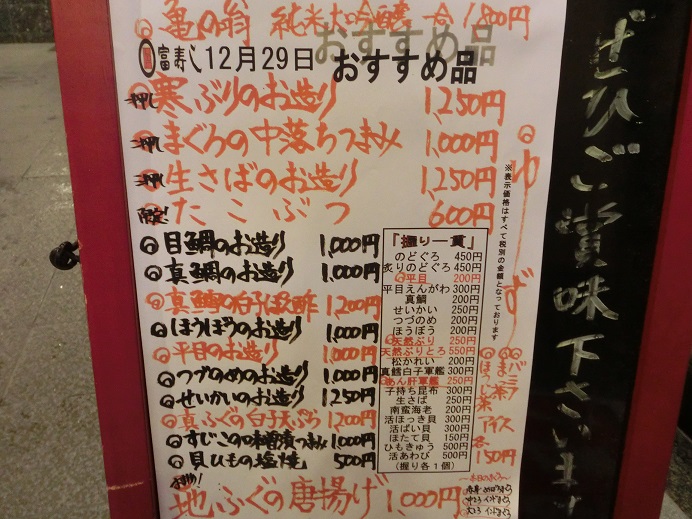 亀の翁 純米大吟醸 一合 1,800円
富寿し 12月29日 おすすめ品
寒ぶりのお造り 1,250円
まぐろの中落ちつまみ 1,000円
生さばのお造り 1,250円
限定! たこぶつ 600円
目鯛のお造り 1,000円
真鯛のお造り 1,000円
真鱈の白子ぽん酢 1,200円
ほうぼうのお造り 1,000円
平目のお造り 1,000円
つづのめのお造り 1,000円
せいかいのお造り 1,250円
真ふぐの白子天ぷら 1,200円
すじこの味噌漬つまみ 1,000円
貝ひもの塩焼 500円
地ふぐの唐揚げ 1,000円
「握り一貫」
のどぐろ 450円
炙りのどぐろ 450円
平目 200円
平目えんがわ 300円
真鯛 200円
せいかい 250円
つづのめ 200円
ほうぼう 200円
天然ぶり 250円
天然ぶりとろ 550円
松かれい 200円
真鱈白子軍艦 300円
あん肝軍艦 250円
子持ち昆布 300円
生さば 250円
南蛮海老 200円
活ほっき貝 300円
活ばい貝 300円
ほたて貝 150円
ひもきゅう 500円
活あわび 500円
(握り各1個)
※表示価格はすべて税別の金額となっております
ゆず
バニラ
ほうじ茶
アイス
各150円
ぜひご賞味下さいます